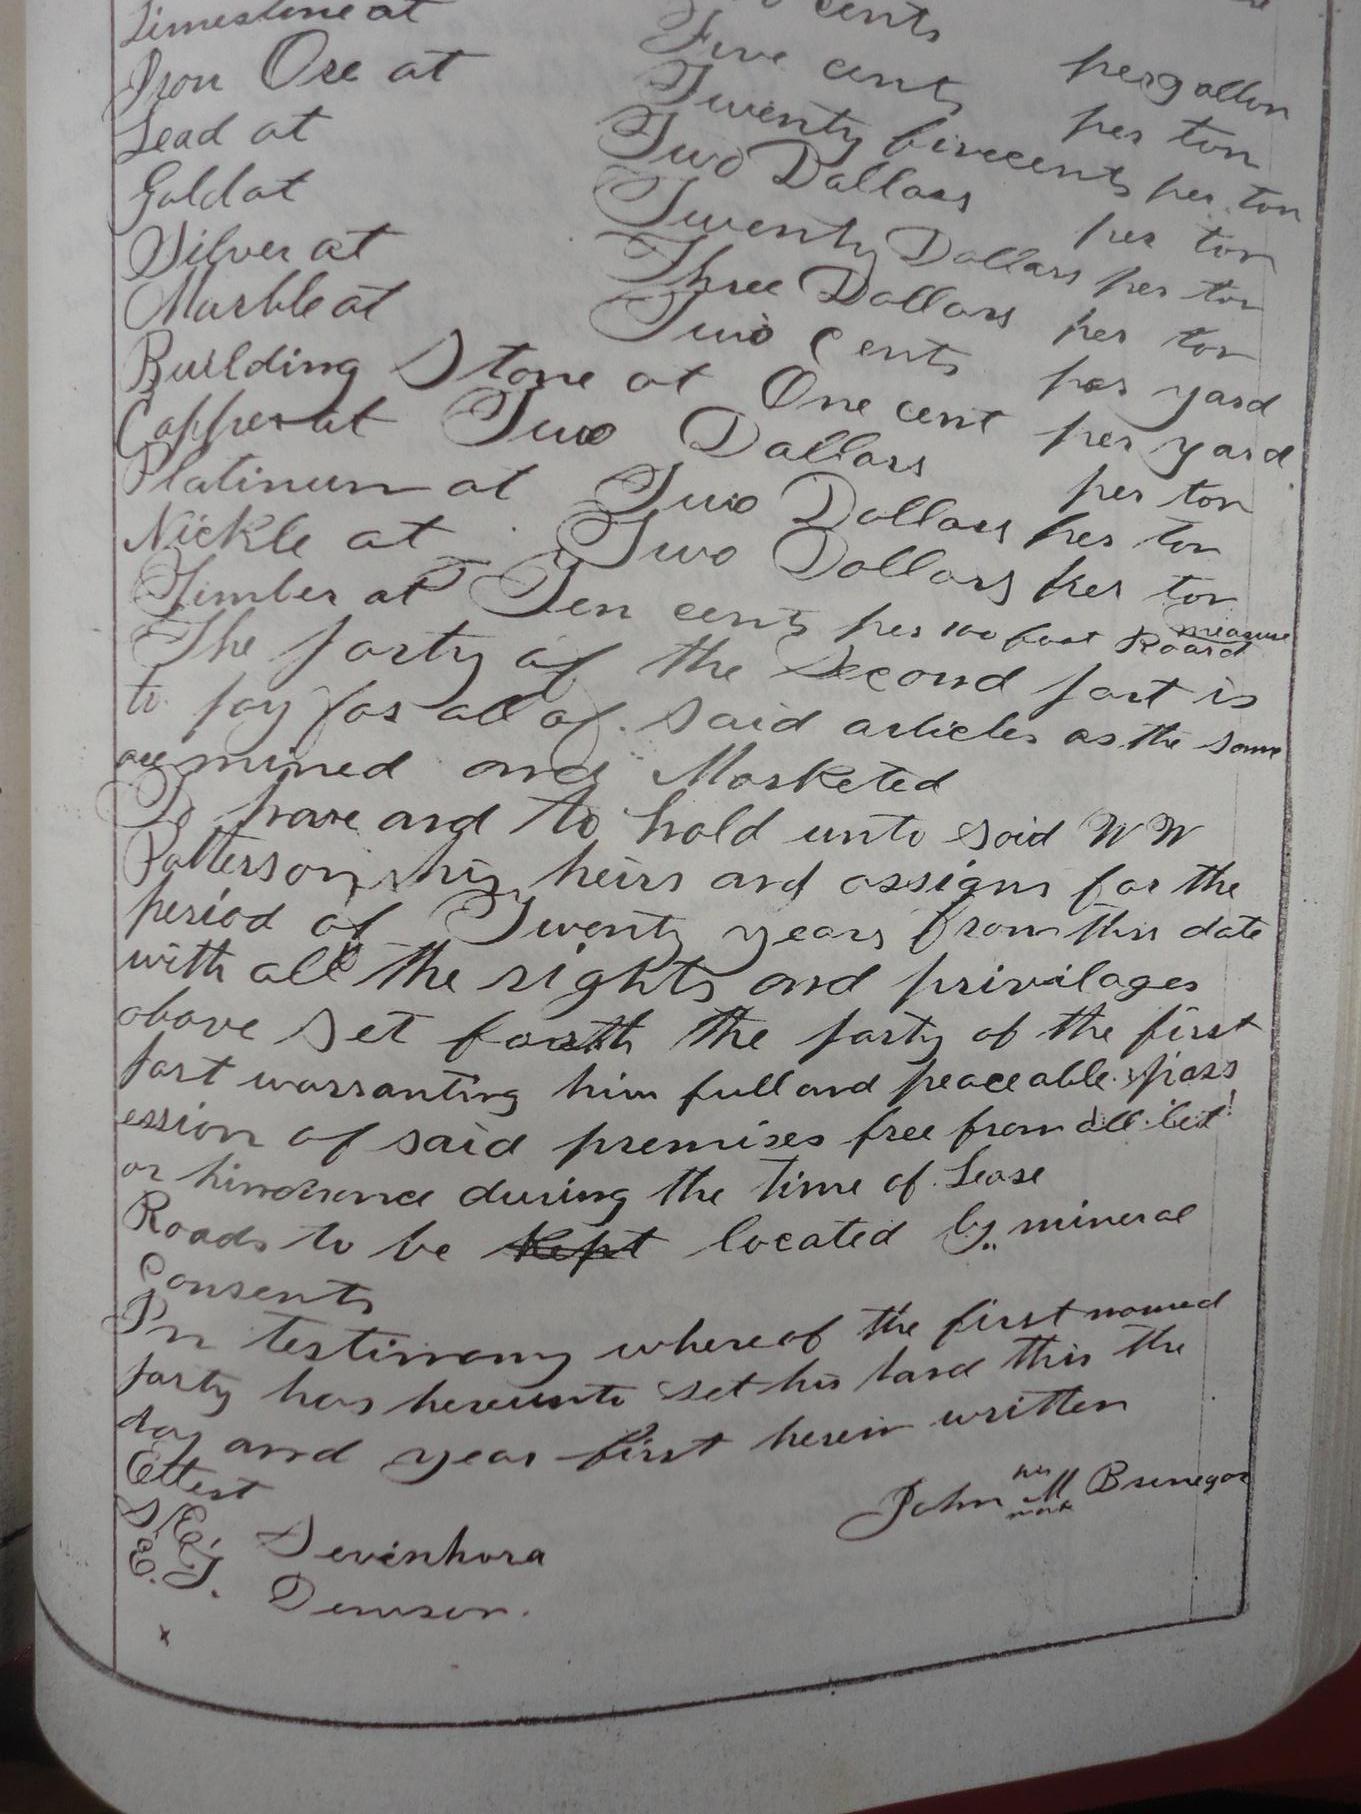 Limestone at cents per gallon
Iron Ore at Five cents per ton
Lead at Twenty five cents per ton
Gold at Two Dollars per ton
Silver at Twenty Dollars per ton
Marble at Three Dollars per ton
Two cents per yard
Building Stone at One cent per yard
Copper at Two Dollars per ton
Platinum at Two Dollars per ton
Nickle at Two Dollars per ton
Timber at Ten cents per 100 foot Board measure
The party of the Second part is
to pay for all of said articles as the same
are mined and Marketed
To have and to hold unto said W W
Patterson, his heirs and assigns for the
period of Twenty years from this date
with all the rights and privilages
above set forth the party of the first
part warranting him full and peaceable poss
ession of said premises free from all let
or hinderance during the time of Lease
Roads to be kept located by mineral
Consents
In testimony whereof the first named
party has hereunto set his hand this the
day and year first herein written
Ettest
John his M mark Brinegar
Devinhora
E. J. Denison.
x